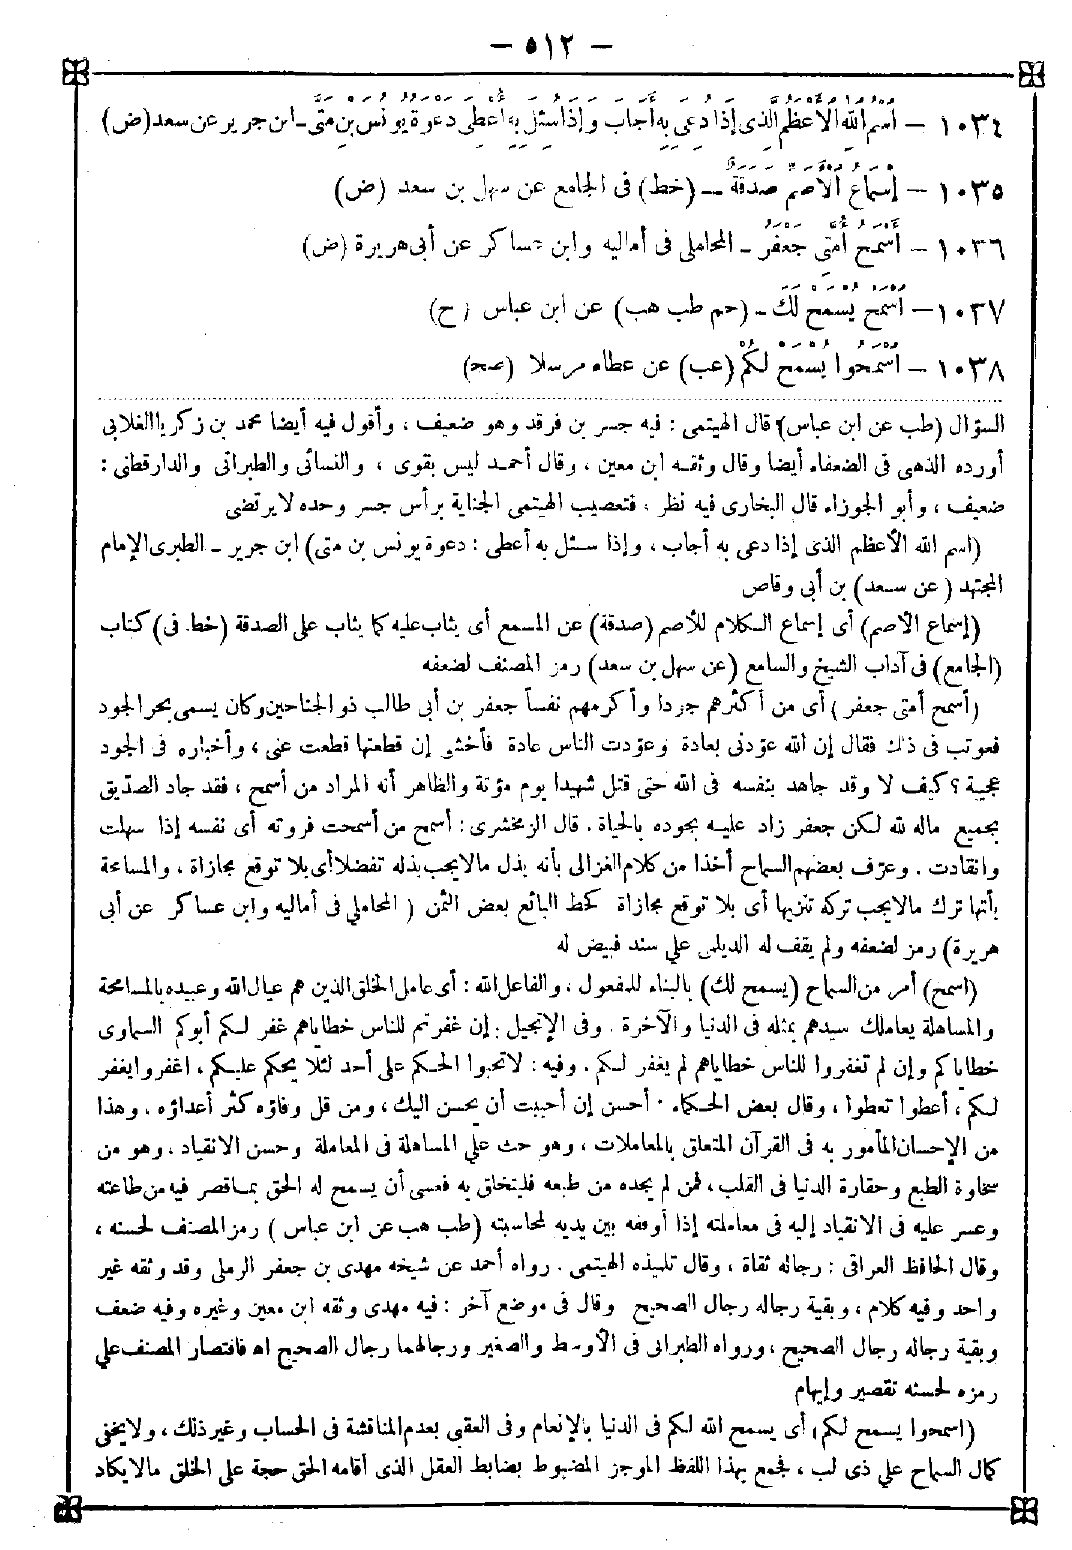 – ٥١٢ –
١٠٣٤ – اسْمُ اللهِ الْأَعْظَمُ الَّذِى إِذَا دُعِىَ بِهِ أَجَابَ وَإِذَا سُئِلَ بِهِ أَعْطَى دَعْوَةُ يُونُسَ بْنِ مَتَّى ــ ابن جرير عن سعد (ض)
١٠٣٥ – إِسْمَاعُ الْأَصَمِّ صَدَقَةٌ ــ (خط) فى الجامع عن سهل بن سعد (ض)
١٠٣٦ – أَسْمَحُ أُمَّتِى جَعْفَرُ ــ المحاملى فى أماليه وابن عساكر عن أبى هريرة (ض)
١٠٣٧ – اسْمَحْ يُسْمَحْ لَكَ ــ (حم طب هب) عن ابن عباس (ح)
١٠٣٨ – اسْمَحُوا يُسْمَحْ لَكُمْ (عب) عن عطاء مرسلا (صح)
السؤال (طب عن ابن عباس) قال الهيتمى : فيه جسر بن فرقد وهو ضعيف ، وأقول فيه أيضا محمد بن زكريا الغلابى
أورده الذهى فى الضعفاء أيضا وقال وثقه ابن معين ، وقال أحمد ليس بقوى ، والنسائى والطبرانى والدارقطنى :
ضعيف ، وأبو الجوزاء قال البخارى فيه نظر ، فتعصيب الهيتمى الجناية برأس جسر وحده لا يرتضى
(اسم الله الأعظم الذى إذا دعى به أجاب ، وإذا سئل به أعطى : دعوة يونس بن متى) ابن جرير ــ الطبرى الإمام
المجتهد (عن سعد) بن أبى وقاص
(إسماع الأصم) أى إسماع الكلام للأصم (صدقة) عن المسمع أى يثاب عليه كما يثاب على الصدقة (خط . فى) كتاب
(الجامع) فى آداب الشيخ والسامع (عن سهل بن سعد) رمز المصنف لضعفه
(أسمح أمتى جعفر) أى من أكثرهم جودا وأكرمهم نفساً جعفر بن أبى طالب ذو الجناحين وكان يسمى بحر الجود
فعوتب فى ذلك فقال إن الله عوّدنى بعادة وعوّدت الناس عادة فأخشى إن قطعتها قطعت عنى ، وأخباره فى الجود
عجيبة ؟ كيف لا وقد جاهد بنفسه فى الله حتى قتل شهيدا يوم مؤتة والظاهر أنه المراد من أسمح ، فقد جاد الصدّيق
بجميع ماله لله لكن جعفر زاد عليه بجوده بالحياة . قال الزمخشرى : أسمح من أسمحت فروته أى نفسه إذا سهلت
وانقادت . وعرّف بعضهم السماح أخذا من كلام الغزالى بأنه بذل مالا يجب بذله تفضلا أى بلا توقع مجازاة ، والمسامحة
بأنها ترك مالا يجب تركه تنزيها أى بلا توقع مجازاة كحط البائع بعض الثمن (المحاملى فى أماليه وابن عساكر عن أبى
هريرة) رمز لضعفه ولم يقف له الديلمى على سند فبيض له
(اسمح) أمر من السماح (يسمح لك) بالبناء للمفعول ، والفاعل الله : أى عامل الخلق الذين هم عيال الله وعبيده بالمسامحة
والمساهلة يعاملك سيدهم بمثله فى الدنيا والآخرة . وفى الإنجيل : إن غفرتم للناس خطاياهم غفر لكم أبوكم السماوى
خطاياكم وإن لم تغفروا للناس خطاياهم لم يغفر لكم . وفيه : لا تحبوا الحكم على أحد لئلا يحكم عليكم ، اغفروا يغفر
لكم ، أعطوا تعطوا ، وقال بعض الحكماء . أحسن إن أحببت أن يحسن اليك ، ومن قل وفاؤه كثر أعداؤه . وهذا
من الإحسان المأمور به فى القرآن المتعلق بالمعاملات ، وهو حث على المساهلة فى المعاملة وحسن الانقياد ، وهو من
سخاوة الطبع وحقارة الدنيا فى القلب ، فمن لم يجده من طبعه فليتخلق به فعسى أن يسمح له الحق بما قصر فيه من طاعته
وعسر عليه فى الانقياد إليه فى معاملته إذا أوقفه بين يديه لمحاسبته (طب هب عن ابن عباس) رمز المصنف لحسنه ،
وقال الحافظ العراقى : رجاله ثقاة ، وقال تلميذه الهيتمى . رواه أحمد عن شيخه مهدى بن جعفر الرملى وقد وثقه غير
واحد وفيه كلام ، وبقية رجاله رجال الصحيح وقال فى موضع آخر : فيه مهدى وثقه ابن معين وغيره وفيه ضعف
وبقية رجاله رجال الصحيح ، ورواه الطبرانى فى الأوسط والصغير ورجالهما رجال الصحيح اه فاقتصار المصنف على
رمزه لحسنه تقصير وإيهام
(اسمحوا يسمح لكم) أى يسمح الله لكم فى الدنيا بالإنعام وفى العقبى بعدم المناقشة فى الحساب وغير ذلك ، ولا يخفى
كمال السماح على ذى لب ، فجمع بهذا اللفظ الموجز المضبوط بضابط العقل الذى أقامه الحق حجة على الخلق مالا يكاد